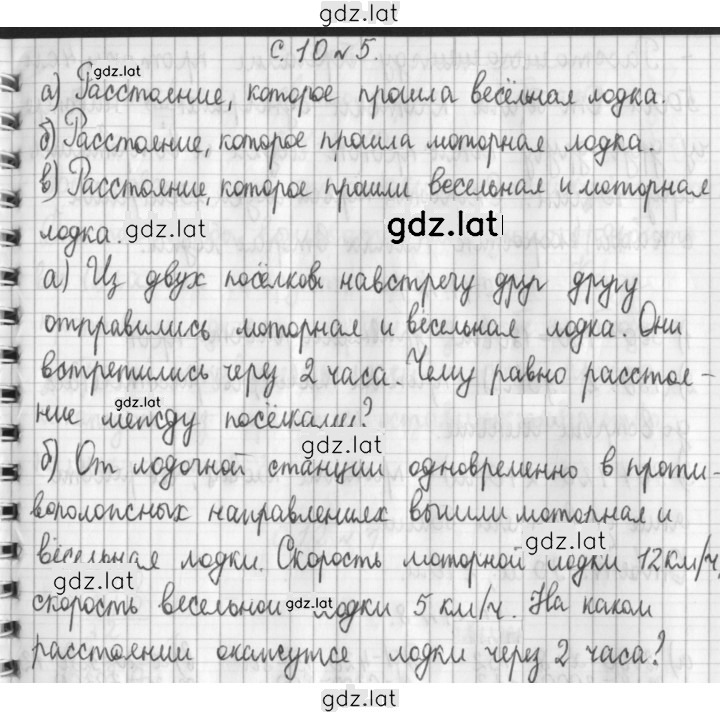 gdz.lat
с. 10 № 5.
gdz.lat
а) Расстояние, которое прошла весельная лодка.
б) Расстояние, которое прошла моторная лодка.
в) Расстояние, которое прошли весельная и моторная
лодка. gdz.lat gdz.lat
а) Из двух посёлков навстречу друг другу
отправились моторная и весельная лодка. Они
встретились через 2 часа. Чему равно расстоя-
gdz.lat
ние между посёлками?
gdz.lat
б) От лодочной станции одновременно в проти-
воположных направлениях вышли моторная и
gdz.lat
весельная лодки. Скорость моторной лодки 12 км/ч,
gdz.lat
скорость весельной gdz.lat лодки 5 км/ч. На каком
расстоянии окажутся лодки через 2 часа?
gdz.lat